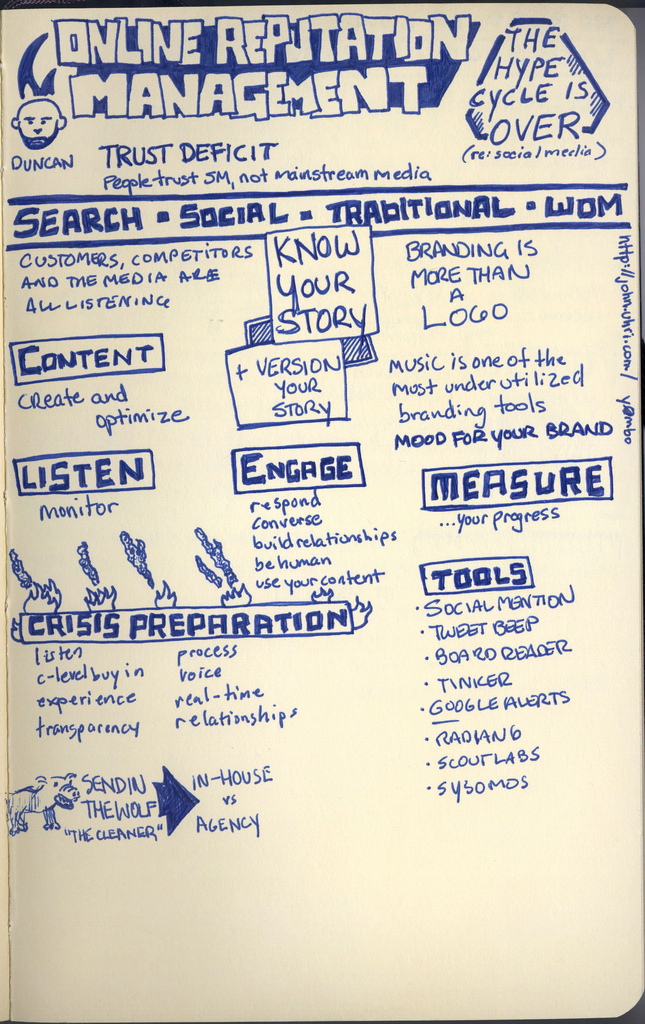 ONLINE REPUTATION
MANAGEMENT
THE
HYPE
CYCLE IS
OVER
(re: social media)
DUNCAN
TRUST DEFICIT
People trust SM, not mainstream media
SEARCH • SOCIAL • TRADITIONAL • WOM
CUSTOMERS, COMPETITORS
AND THE MEDIA ARE
ALL LISTENING
KNOW
YOUR
STORY
+ VERSION
YOUR
STORY
BRANDING IS
MORE THAN
A
LOGO
MUSIC is one of the
most underutilized
branding tools
MOOD FOR YOUR BRAND
http://johnmuhri.com/ y@mbo
CONTENT
create and
optimize
LISTEN
monitor
ENGAGE
respond
converse
build relationships
be human
use your content
MEASURE
...your progress
CRISIS PREPARATION
listen
c-level buy in
experience
transparency
process
voice
real-time
relationships
TOOLS
• SOCIAL MENTION
• TWEET BEEP
• BOARD READER
• TINKER
• GOOGLE ALERTS
• RADIAN6
• SCOUTLABS
• SYSOMOS
SEND IN
THE WOLF
"THE CLEANER"
IN-HOUSE
vs
AGENCY